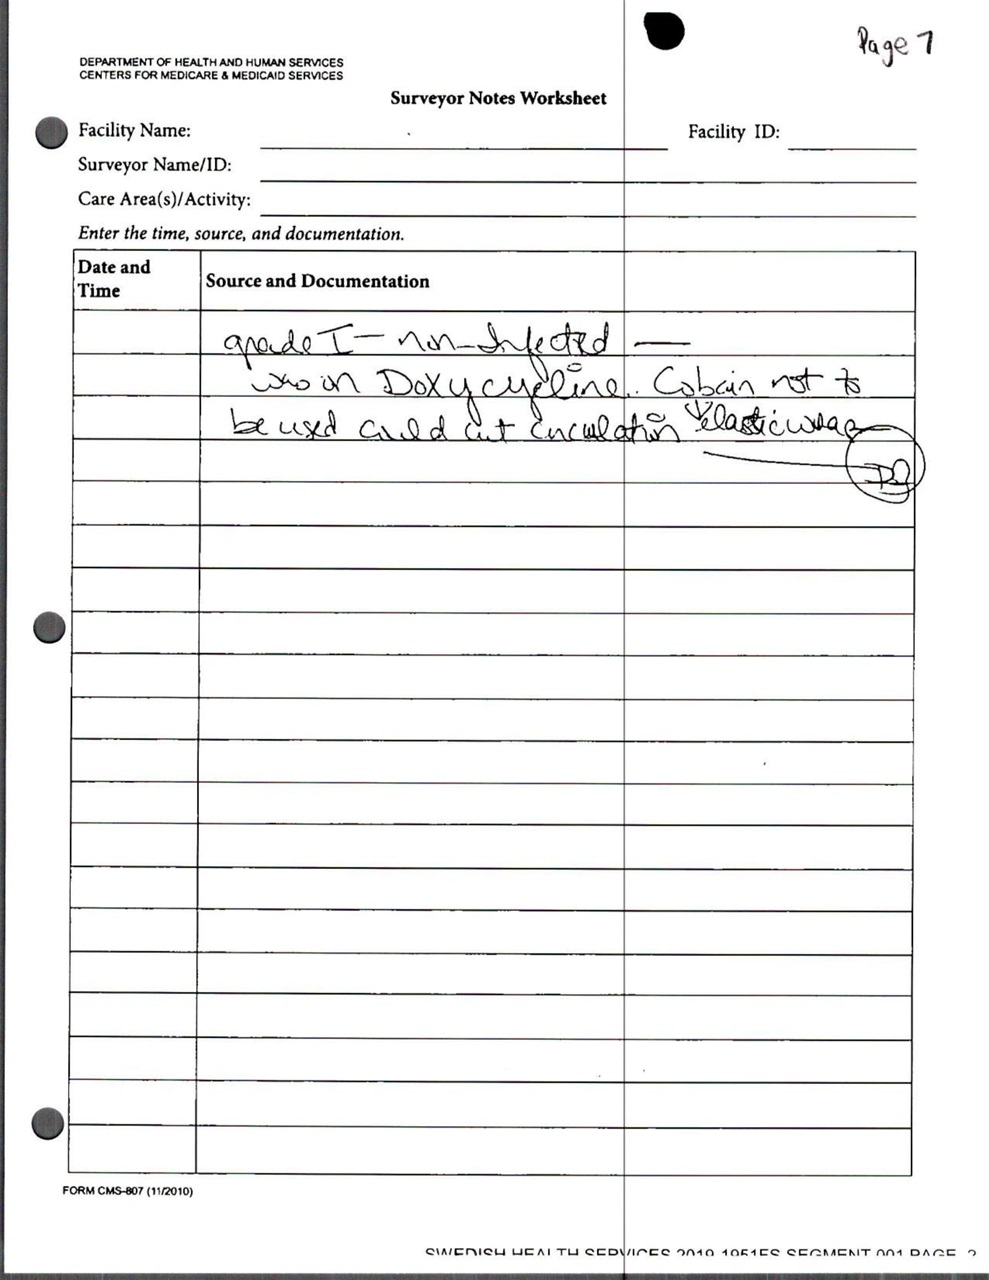 Page 7
DEPARTMENT OF HEALTH AND HUMAN SERVICES
CENTERS FOR MEDICARE & MEDICAID SERVICES
Surveyor Notes Worksheet
Facility Name:
Facility ID:
Surveyor Name/ID:
Care Area(s)/Activity:
Enter the time, source, and documentation.
Date and Time
Source and Documentation
grade I – non-Infected —
was on Doxycycline. Coban not to
be used could cut circulation elastic wrap
FORM CMS-807 (11/2010)
SWEDISH HEALTH SERVICES 2019 1951FS SEGMENT 001 PAGE 2